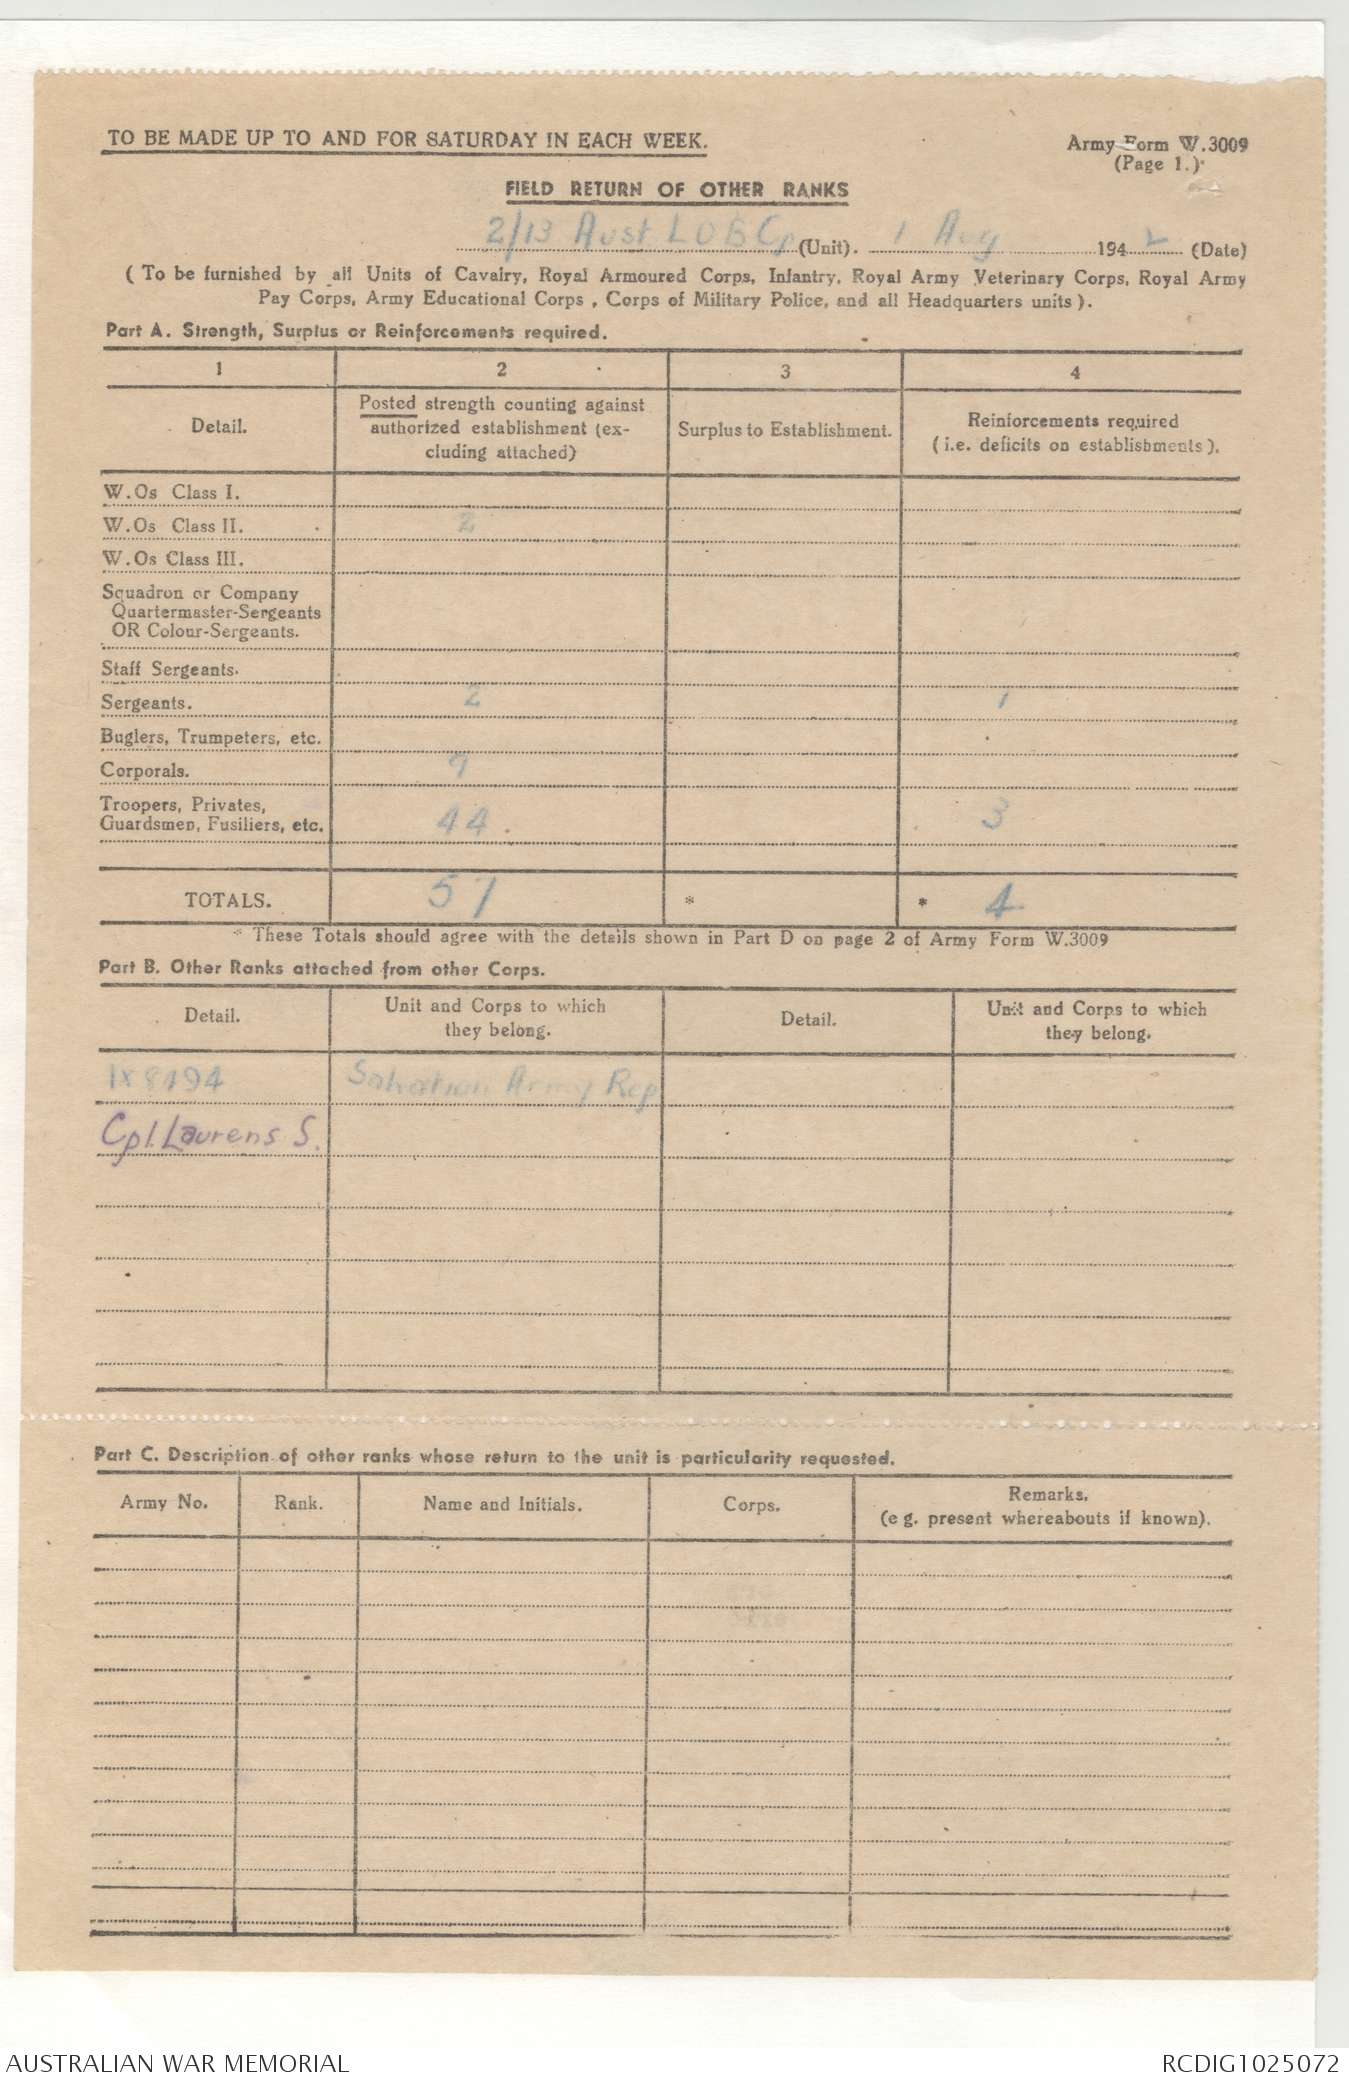 TO BE MADE UP TO AND FOR SATURDAY IN EACH WEEK.
Army Form W.3009
(Page 1.)
FIELD RETURN OF OTHER RANKS
2/13 Aust L O B Cp (Unit). 1 Aug 1942 (Date)
( To be furnished by all Units of Cavalry, Royal Armoured Corps, Infantry, Royal Army Veterinary Corps, Royal Army
Pay Corps, Army Educational Corps , Corps of Military Police, and all Headquarters units ).
Part A. Strength, Surplus or Reinforcements required.
1 2 3 4
Detail.
Posted strength counting against
authorized establishment (ex-
cluding attached)
Surplus to Establishment.
Reinforcements required
( i.e. deficits on establishments ).
W.Os Class I.
W.Os Class II. 2
W.Os Class III.
Squadron or Company
Quartermaster-Sergeants
OR Colour-Sergeants.
Staff Sergeants.
Sergeants. 2 1
Buglers, Trumpeters, etc.
Corporals. 9
Troopers, Privates,
Guardsmen, Fusiliers, etc. 44 3
TOTALS. 57 * * 4
* These Totals should agree with the details shown in Part D on page 2 of Army Form W.3009
Part B. Other Ranks attached from other Corps.
Detail.
Unit and Corps to which
they belong.
Detail.
Unit and Corps to which
they belong.
Army Rep
Cpl. Laurens S.
Part C. Description of other ranks whose return to the unit is particularity requested.
Army No. Rank. Name and Initials. Corps.
Remarks.
(e g. present whereabouts if known).
AUSTRALIAN WAR MEMORIAL
RCDIG1025072